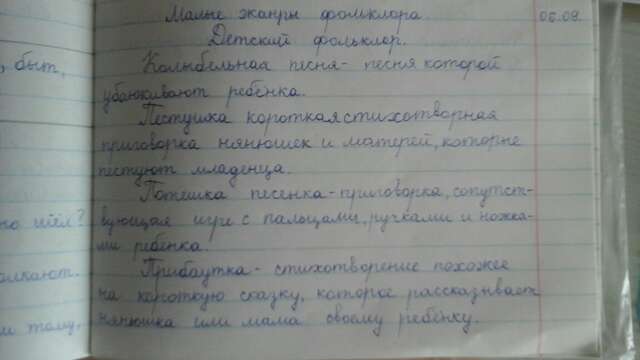 Малые жанры фольклора. 06.09.
Детский фольклор.
Колыбельная песня - песня которой
убаюкивают ребёнка.
Пестушка короткая стихотворная
приговорка нянюшек и матерей, которые
пестуют младенца.
Потешка песенка-приговорка, сопутст-
вующая игре с пальцами, ручками и ножка-
ми ребёнка.
Прибаутка - стихотворение похожее
на короткую сказку, которое рассказывает
нянюшка или мама своему ребёнку.
, быт,
но шёл?
алкают.
тому,